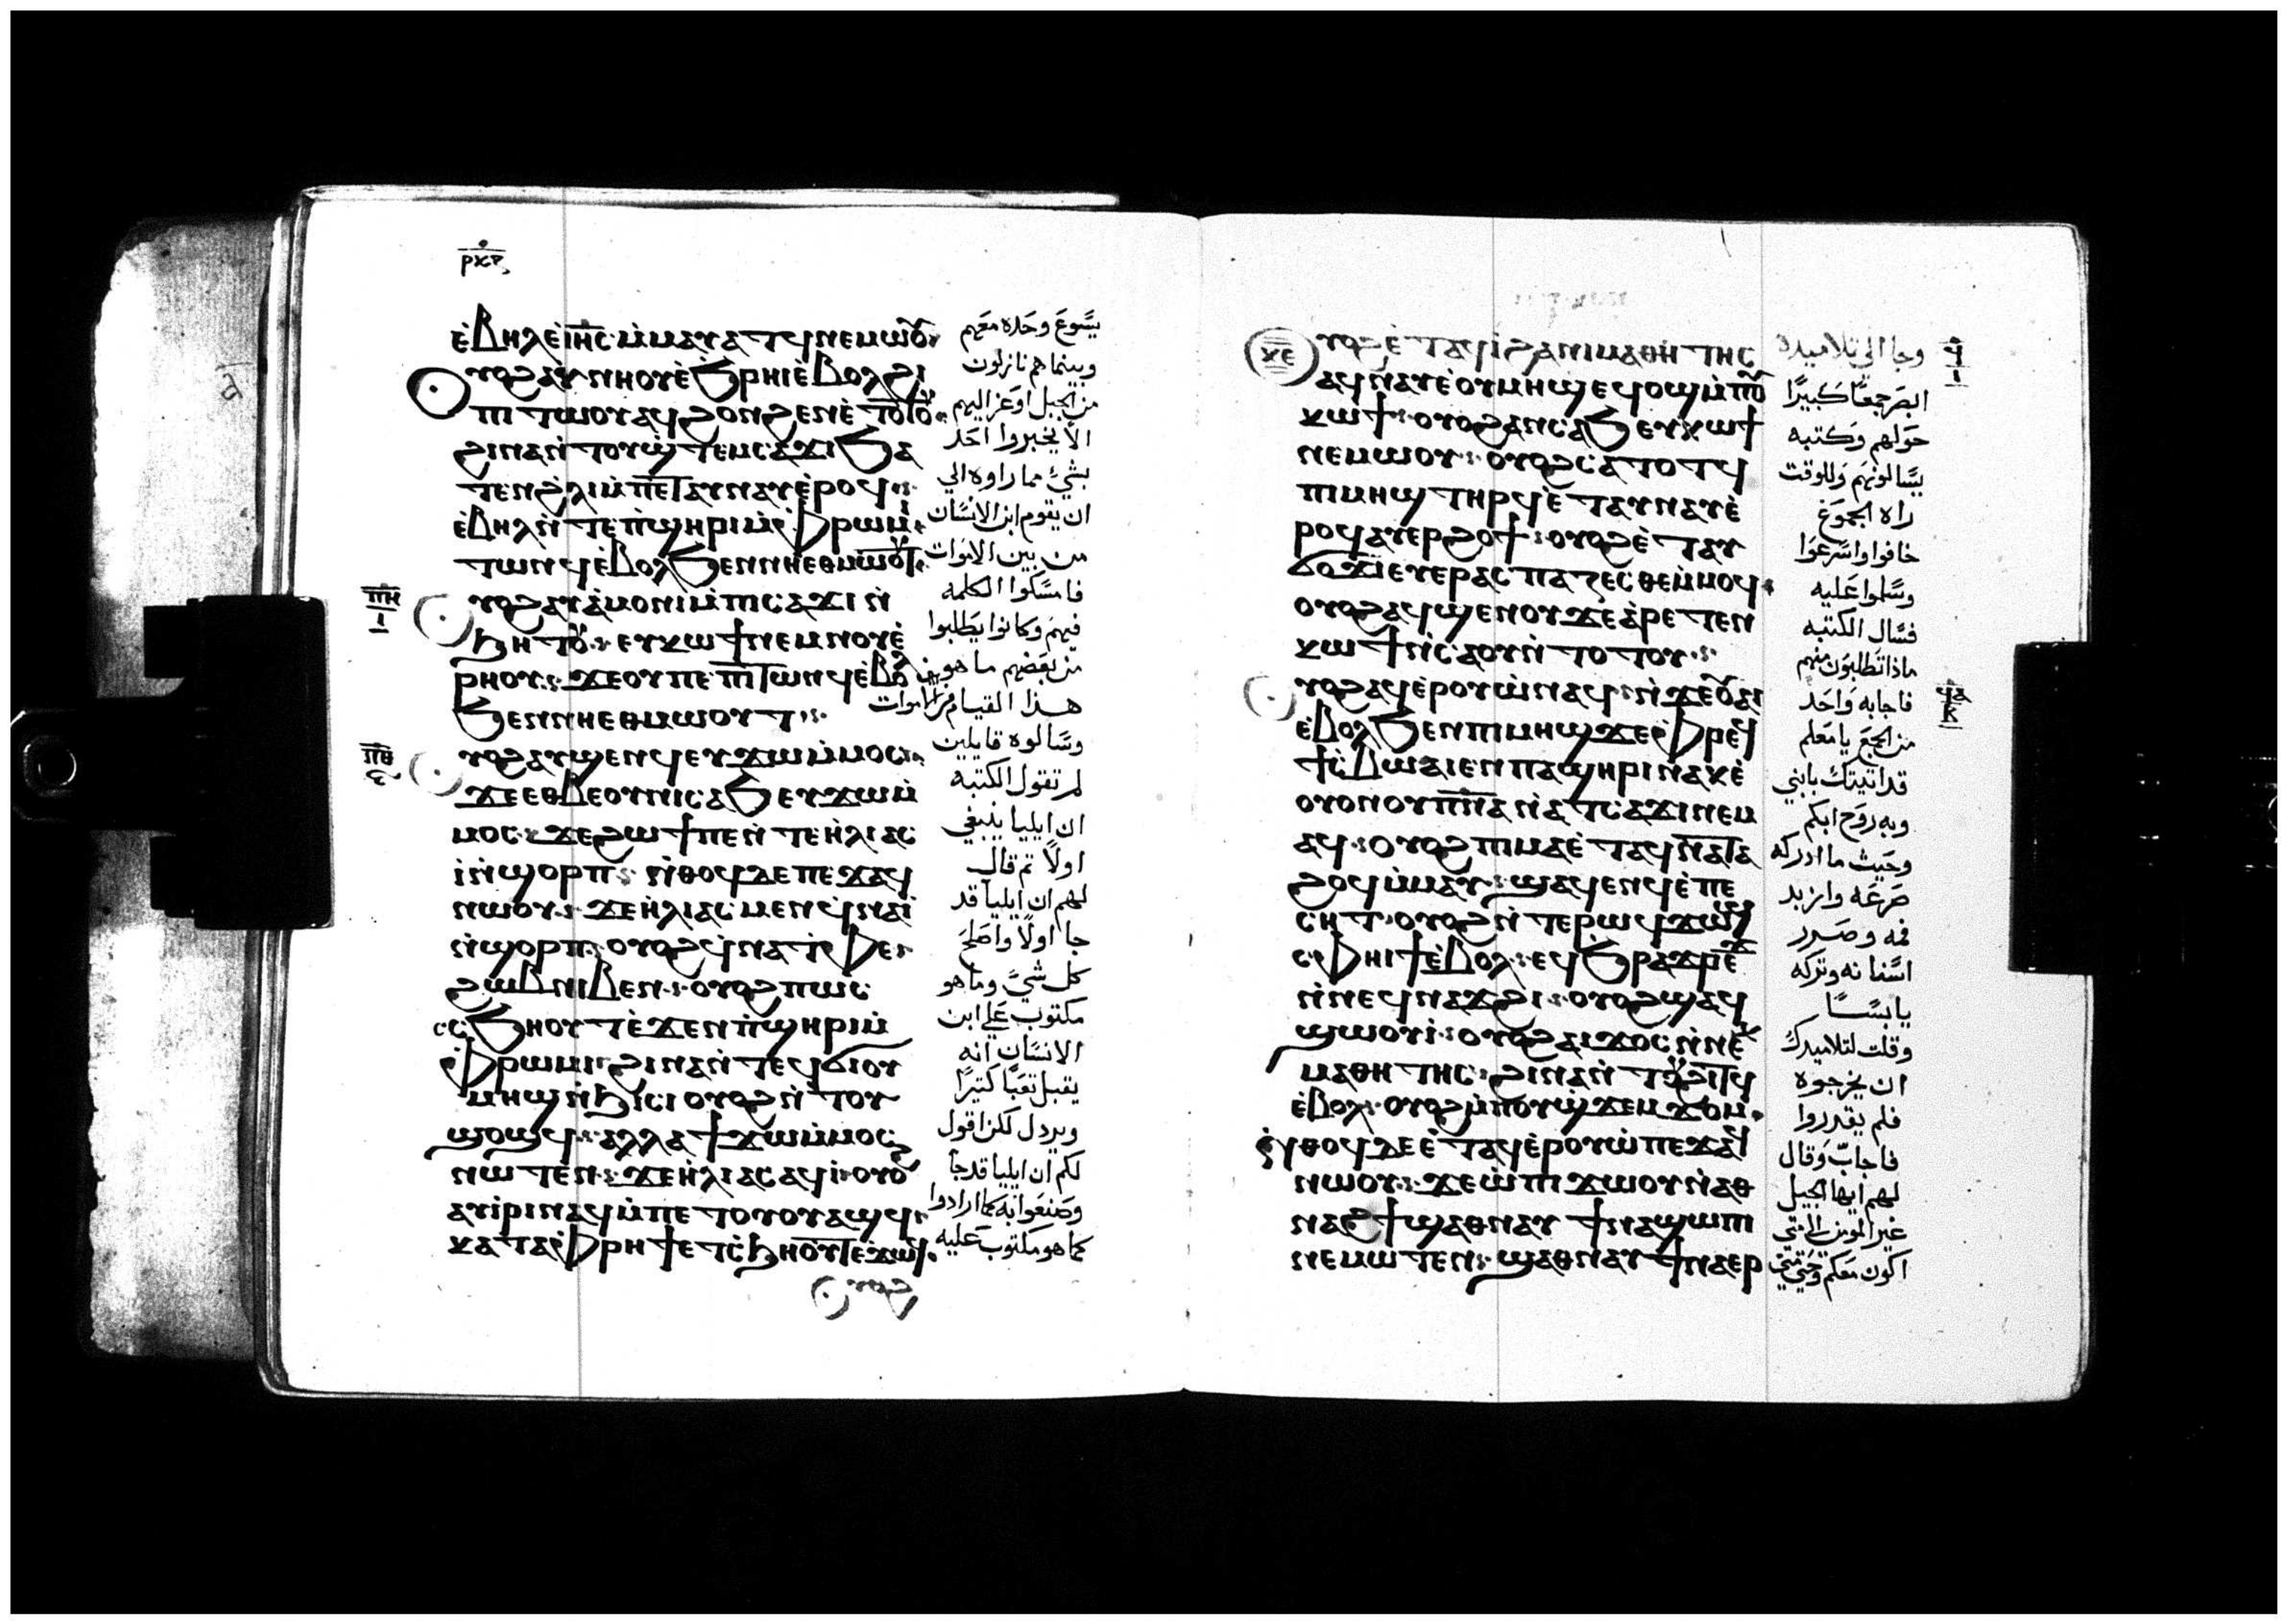 ⲣⲕⲋ
ⲉ̀ⲃⲏⲗ ⲉ̀ⲓⲏⲥ ⲙ̀ⲙⲁⲩⲁⲧϥ ⲛⲉⲙⲱⲟⲩ
ⲟⲩⲟϩ ⲁⲩⲛⲏⲟⲩ ⲉ̀ϧⲣⲏⲓ ⲉ̀ⲃⲟⲗϩⲓ
ⲡⲓⲧⲱⲟⲩ ⲁϥϩⲟⲛϩⲉⲛ ⲉ̀ⲧⲟⲧⲟⲩ
ϩⲓⲛⲁ ⲛ̀ⲧⲟⲩϣ̀ⲧⲉⲙⲥⲁϫⲓ ϧⲁ
ⲧⲉⲛ ϩ̀ⲗⲓ ⲙ̀ⲡⲉⲧⲁⲩⲛⲁⲩ ⲉ̀ⲣⲟϥ
ⲉ̀ⲃⲏⲗ ⲛ̀ⲧⲉ ⲡ̀ϣⲏⲣⲓ ⲙ̀ⲫ̀ⲣⲱⲙⲓ
ⲧⲱⲛϥ ⲉ̀ⲃⲟⲗϧⲉⲛ ⲛⲏⲉⲑⲙⲱⲟⲩⲧ
ⲡⲏ
ⲓ
ⲟⲩⲟϩ ⲁⲩⲁ̀ⲙⲟⲛⲓ ⲙ̀ⲡⲓⲥⲁϫⲓ ⲛ̀
ϧⲏⲧⲟⲩ ⲉⲩⲕⲱϯ ⲛⲉⲙ ⲛⲟⲩⲉ̀
ⲣⲏⲟⲩ ϫⲉ ⲟⲩ ⲡⲉ ⲡⲓⲧⲱⲛϥ ⲉ̀ⲃⲟⲗ
ϧⲉⲛ ⲛⲏⲉⲑⲙⲱⲟⲩⲧ
ⲡⲑ
ⲋ
ⲟⲩⲟϩ ⲁⲩϣⲉⲛϥ ⲉⲩϫⲱ ⲙ̀ⲙⲟⲥ
ϫⲉ ⲉⲑⲃⲉⲟⲩ ⲛⲓⲥⲁϧ ⲉⲩϫⲱ ⲙ̀
ⲙⲟⲥ ϫⲉ ϩⲱϯ ⲡⲉ ⲛ̀ⲧⲉ ⲏ̀ⲗⲓⲁⲥ
ⲓ̀ ⲛ̀ϣⲟⲣⲡ ⲛ̀ⲑⲟϥ ⲇⲉ ⲡⲉϫⲁϥ
ⲛⲱⲟⲩ ϫⲉ ⲏ̀ⲗⲓⲁⲥ ⲙⲉⲛ ϥ̀ⲛⲁⲓ̀
ⲛ̀ϣⲟⲣⲡ ⲟⲩⲟϩ ϥ̀ⲛⲁⲧⲫⲉ
ϩⲱⲃ ⲛⲓⲃⲉⲛ ⲟⲩⲟϩ ⲡⲱⲥ
ⲥⲥϧⲏⲟⲩⲧ ⲉ̀ϫⲉⲛ ⲡ̀ϣⲏⲣⲓ ⲙ̀
ⲫ̀ⲣⲱⲙⲓ ϩⲓⲛⲁ ⲛ̀ⲧⲉϥϭⲓ ⲟⲩ
ⲙⲏϣ ⲛ̀ϧⲓⲥⲓ ⲟⲩⲟϩ ⲛ̀ⲧⲟⲩ
ϣⲟϣϥ ⲁⲗⲗⲁ ϯϫⲱ ⲙ̀ⲙⲟⲥ
ⲛⲱⲧⲉⲛ ϫⲉ ⲏ̀ⲗⲓⲁⲥ ⲁϥⲓ̀ ⲟⲩⲟϩ
ⲁⲩⲓ̀ⲣⲓ ⲛⲁϥ ⲙ̀ⲡⲉⲧⲟⲩⲟⲩⲁϣϥ
ⲕⲁⲧⲁ ⲫ̀ⲣⲏϯ ⲉⲧⲥ̀ϧⲏⲟⲩⲧ ⲉ̀ϫⲱϥ
ⲟⲩⲟϩ
يسوع وحده معهم
وبينما هم نازلون
من الجبل اوعز اليهم
الا يخبروا احد
بشي مما راوه الي
ان يقوم ابن الانسان
من بين الاموات
فامسكوا الكلمه
فيهم وكانوا يطلبوا
من بعضهم ما هو
هذا القيام من الاموات
وسالوه قايلين
لم تقول الكتبه
ان ايليا ينبغي
اولا تم قال
لهم ان ايليا قد
جا اولا واصلح
كل شي وما هو
مكتوب علي ابن
الانسان انه
يقبل تعبا كتيرا
ويردل لكن اقول
لكم ان ايليا قد جا
وصنعوا به كما ارادوا
كما هو مكتوب عليه
ⲕⲉ
ⲟⲩⲟϩ ⲉ̀ⲧⲁϥⲓ̀ ϩⲁ ⲛⲓⲙⲁⲑⲏⲧⲏⲥ
ⲁϥⲛⲁⲩ ⲉ̀ⲟⲩⲙⲏϣ ⲉϥⲟϣ ⲙ̀ⲡⲟⲩ
ⲕⲱϯ ⲟⲩⲟϩ ϩⲁⲛⲥⲁϧ ⲉⲩⲕⲱϯ
ⲛⲉⲙⲱⲟⲩ ⲟⲩⲟϩ ⲥⲁⲧⲟⲧϥ
ⲡⲓⲙⲏϣ ⲧⲏⲣϥ ⲉ̀ⲧⲁⲩⲛⲁⲩ ⲉ̀
ⲣⲟϥ ⲁⲩⲉⲣϩⲟϯ ⲟⲩⲟϩ ⲉ̀ⲧⲁⲩ
ϭⲟϫⲓ ⲉⲩⲉⲣⲁⲥⲡⲁⲍⲉⲥⲑⲉ ⲙ̀ⲙⲟϥ
ⲟⲩⲟϩ ⲁϥϣⲉⲛⲟⲩ ϫⲉ ⲁ̀ⲣⲉⲧⲉⲛ
ⲕⲱϯ ⲛ̀ⲥⲁ ⲟⲩ ⲛ̀ⲧⲟⲧⲟⲩ
ⲟⲩⲟϩ ⲁϥⲉ̀ⲣⲟⲩⲱ̀ ⲛⲁϥ ⲛ̀ϫⲉ ⲟⲩⲁⲓ
ⲉ̀ⲃⲟⲗϧⲉⲛ ⲡⲓⲙⲏϣ ϫⲉ ⲫ̀ⲣⲉϥ
ϯⲥ̀ⲃⲱ ⲁⲓⲉⲛ ⲡⲁϣⲏⲣⲓ ⲛⲁⲕ ⲉ̀
ⲟⲩⲟⲛ ⲟⲩⲡⲛⲁ ⲛ̀ⲁⲧⲥⲁϫⲓ ⲛⲉⲙ
ⲁϥ ⲟⲩⲟϩ ⲡⲓⲙⲁ ⲉ̀ⲧⲁϥⲛⲁⲧⲁ
ϩⲟϥ ⲙ̀ⲙⲁⲩ ϣⲁϥⲉⲛϥ ⲉ̀ⲡⲉ
ⲥⲏⲧ ⲟⲩⲟϩ ⲛ̀ⲧⲉ ⲣⲱϥ ϫⲱϣ
ⲥⲫⲏⲓϯ ⲉ̀ⲃⲟⲗ ⲉϥϧⲣⲁϫⲣⲉϫ
ⲛ̀ⲛⲉϥⲛⲁϫϩⲓ ⲟⲩⲟϩ ϣⲁϥ
ϣⲱⲟⲩⲓ̀ ⲟⲩⲟϩ ⲁⲓϫⲟⲥ ⲛ̀ⲛⲉⲕ
ⲙⲁⲑⲏⲧⲏⲥ ϩⲓⲛⲁ ⲛ̀ⲧⲟⲩϩⲓⲧϥ
ⲉ̀ⲃⲟⲗ ⲟⲩⲟϩ ⲙ̀ⲡⲟⲩϣ̀ϫⲉⲙϫⲟⲙ
ⲛ̀ⲑⲟϥ ⲇⲉ ⲉ̀ⲧⲁϥⲉ̀ⲣⲟⲩⲱ̀ ⲡⲉϫⲁϥ
ⲛⲱⲟⲩ ϫⲉ ⲱ̀ ⲡⲓϫⲱⲟⲩ ⲛ̀ⲁⲑ
ⲛⲁϩϯ ϣⲁ ⲑⲛⲁⲩ ϯⲛⲁϣⲱⲡⲓ
ⲛⲉⲙⲱⲧⲉⲛ ϣⲁ ⲑⲛⲁⲩ ϯⲛⲁⲉⲣ
ϥ
ⲓ
وجا الي تلاميده
ابصر جمعا كبيرا
حولهم وكتبه
يسالونهم وللوقت
راه الجموع
خافوا واسرعوا
وسلموا عليه
فسال الكتبه
ماذا تطلبون منهم
ϥⲁ
ⲕ
فاجابه واحد
من الجمع يا معلم
قد اتيتك بابني
وبه روح ابكم
وحيث ما ادركه
صرعه وازبد
فمه وصرر
اسنانه وتركه
يابسا
وقلت لتلاميدك
ان يخرجوه
فلم يقدروا
فاجاب وقال
لهم ايها الجيل
غير المومن الي متي
اكون معكم وحتي متي